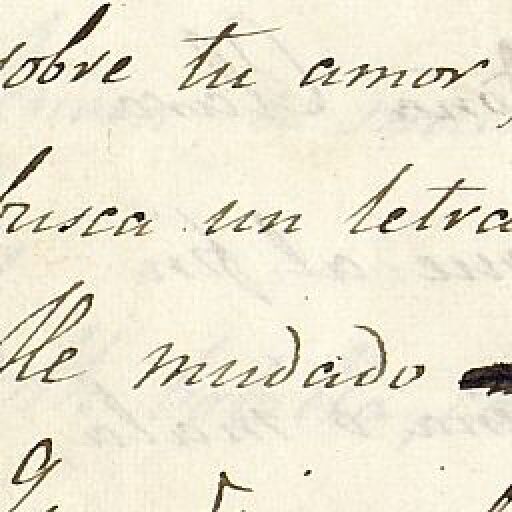 sobre tu amor,
busca un letra
He mudado